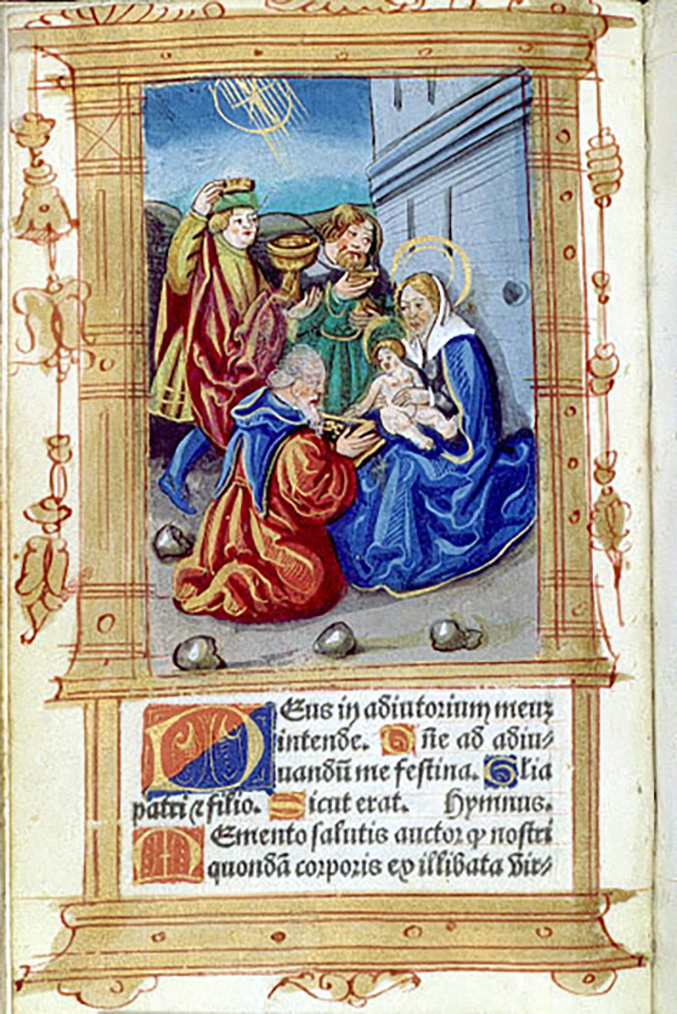 Deus in adiutorium meuz
intende. Dñe ad adiu-
uandū me festina. Glia
patri ⁊ filio. Sicut erat. Hymnus.
Memento salutis auctor ꝙ nostri
quondā corporis ex illibata vir-